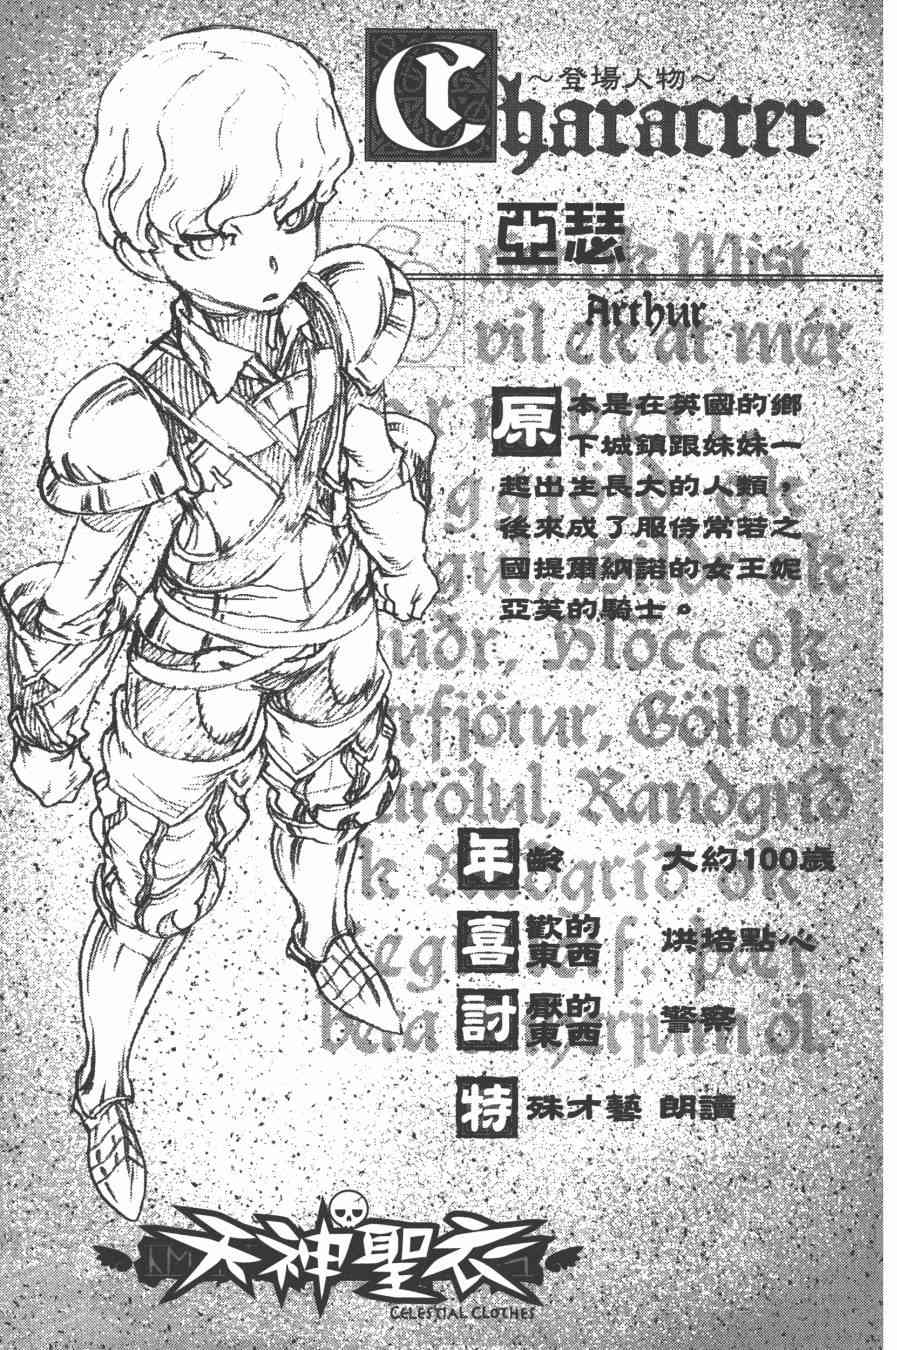 ～登場人物～
Character
亞瑟
Arthur
原本是在英國的鄉
下城鎮跟妹妹一
起出生長大的人類，
後來成了服侍常若之
國提爾納諾的女王妮
亞芙的騎士。
ok Mist
vil ek at mér
ok
ok
Hlöcc ok
Göll ok
Randgríð
ok
年齡 大約100歲
喜歡的東西 烘培點心
討厭的東西 警察
特殊才藝 朗讀
öl
天神聖衣
CELESTIAL CLOTHES